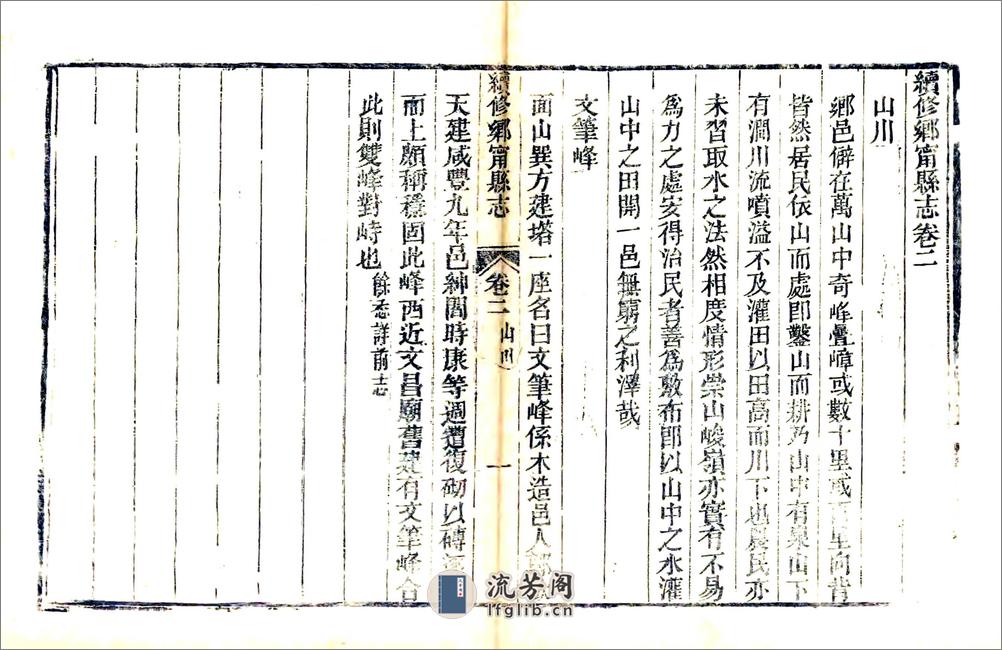 續修鄉甯縣志卷二
山川
鄉邑僻在萬山中奇峰疊嶂或數十里或百里向背
皆然居民依山而處卽鑿山而耕乃山中有泉山下
有澗川流噴溢不及灌田以田高而川下也農民亦
未習取水之法然相度情形崇山峻嶺亦實有不易
為力之處安得治民者善為敷布卽以山中之水灌
山中之田開一邑無窮之利澤哉
文筆峰
面山巽方建塔一座名曰文筆峰係木造邑人鄭
續修鄉甯縣志 卷二 山川 一
天建咸豐九年邑紳閻時康等週遭復砌以磚
而上頗稱穩固此峰西近文昌廟舊建有文筆峰合
此則雙峰對峙也 餘悉詳前志
流芳阁
lfglib.cn